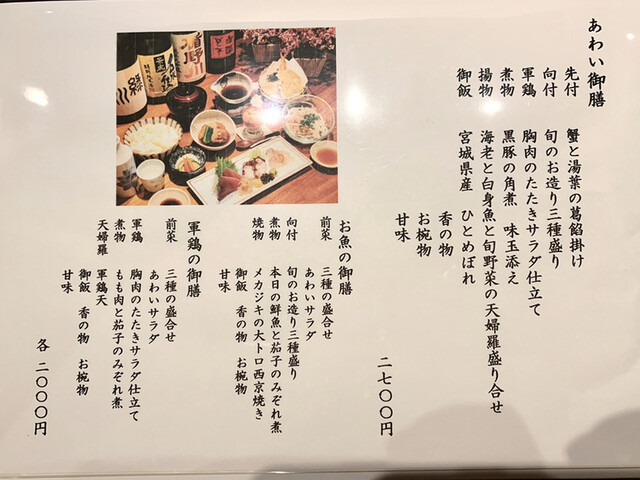 あわい御膳
先付 蟹と湯葉の葛餡掛け
向付 旬のお造り三種盛り
軍鶏 胸肉のたたきサラダ仕立て
煮物 黒豚の角煮 味玉添え
揚物 海老と白身魚と旬野菜の天婦羅盛り合せ
御飯 宮城県産 ひとめぼれ
香の物
お椀物
甘味
二七〇〇円
お魚の御膳
前菜 三種の盛合せ
あわいサラダ
向付 旬のお造り三種盛り
煮物 本日の鮮魚と茄子のみぞれ煮
焼物 メカジキの大トロ西京焼き
御飯 香の物 お椀物
甘味
軍鶏の御膳
前菜 三種の盛合せ
あわいサラダ
軍鶏 胸肉のたたきサラダ仕立て
煮物 もも肉と茄子のみぞれ煮
天婦羅 軍鶏天
御飯 香の物 お椀物
甘味
各 二〇〇〇円